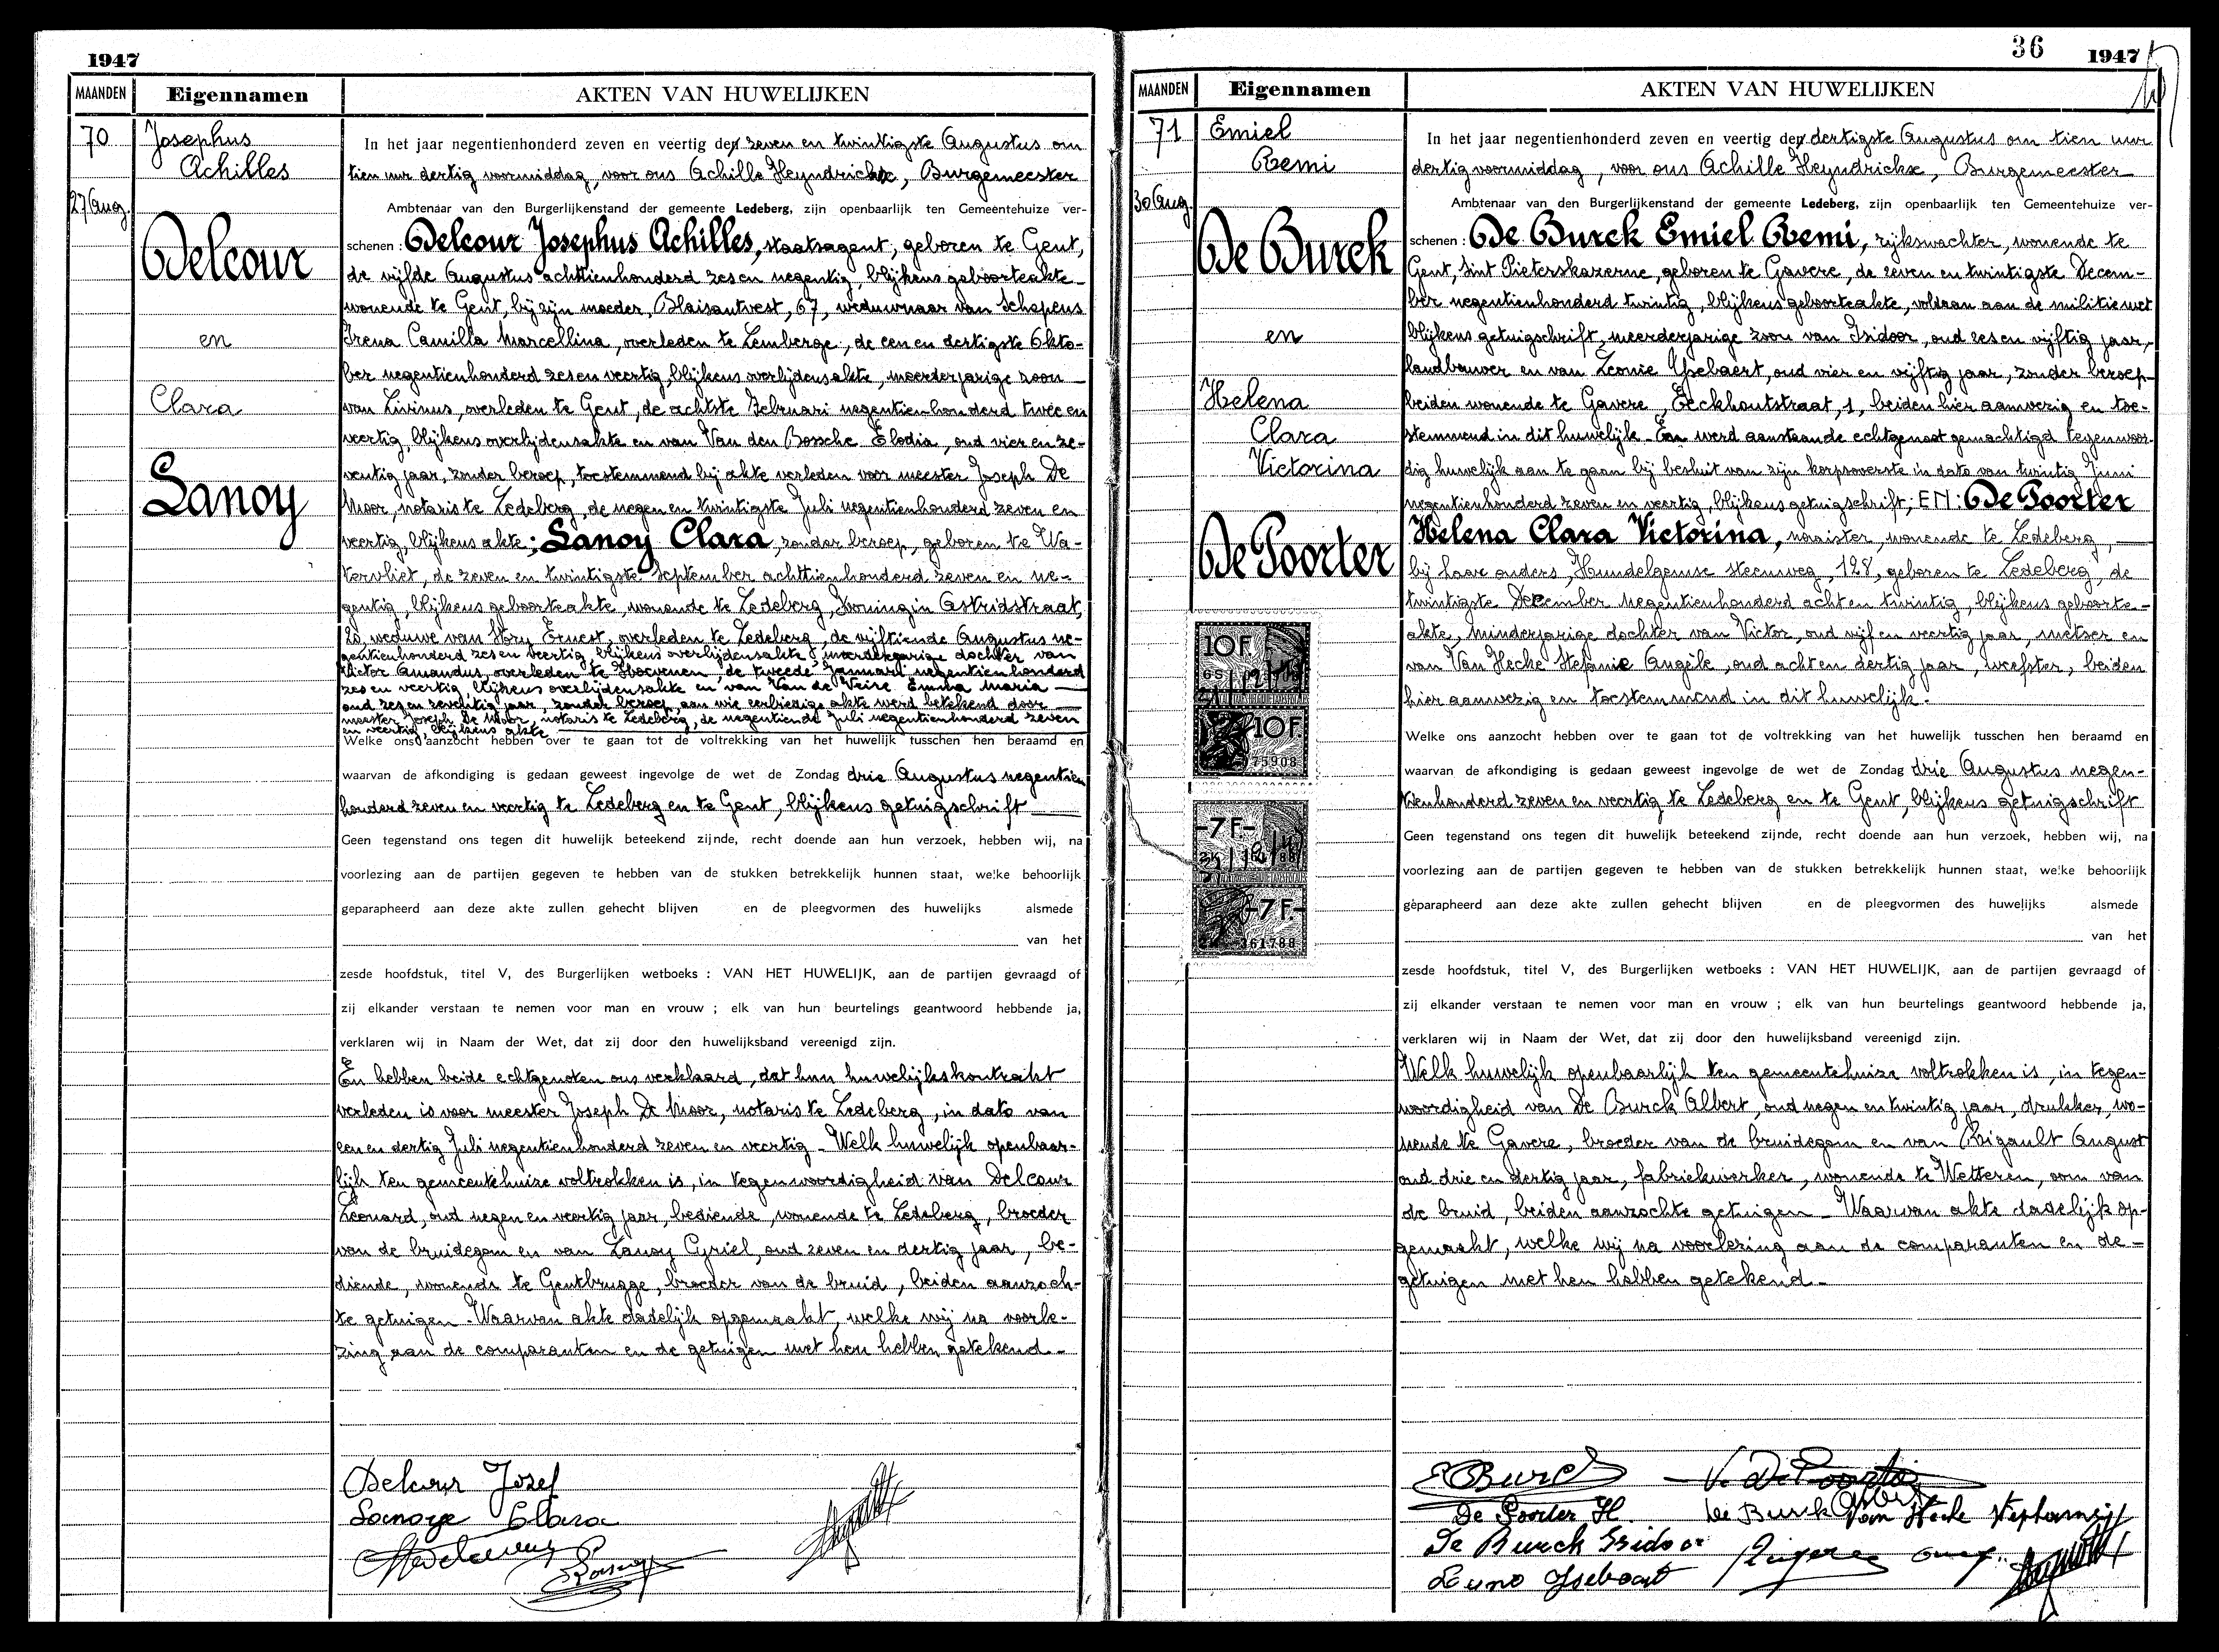 1947
MAANDEN Eigennamen AKTEN VAN HUWELIJKEN
70
27 Aug.
Josephus
Achilles
Delcour
en
Clara
Lanoy
In het jaar negentienhonderd zeven en veertig den zeven en twintigste Augustus om
tien uur dertig voormiddag, voor ons Achille Heyndrickx, Burgemeester
Ambtenaar van den Burgerlijkenstand der gemeente Ledeberg, zijn openbaarlijk ten Gemeentehuize ver-
schenen : Delcour Josephus Achilles, staatsagent, geboren te Gent,
de vijfde Augustus achttienhonderd zes en negentig, blijkens geboorteakte
wonende te Gent, bij zijn moeder, Blaisantvest, 67, weduwnaar van Schepens
Irena Camilla Marcellina, overleden te Lemberge, de een en dertigste Okto-
ber negentienhonderd zes en veertig, blijkens overlijdensakte, meerderjarige zoon
van Livinus, overleden te Gent, de achtste Februari negentienhonderd twee en
veertig, blijkens overlijdensakte en van Van den Bossche Elodia, oud vier en ze-
ventig jaar, zonder beroep, toestemmend bij akte verleden voor meester Joseph De
Moor, notaris te Ledeberg, de negen en twintigste Juli negentienhonderd zeven en
veertig, blijkens akte; Lanoy Clara, zonder beroep, geboren te Wa-
tervliet, de zeven en twintigste September achttienhonderd zeven en ne-
gentig, blijkens geboorteakte, wonende te Ledeberg, Koningin Astridstraat,
20, weduwe van Ernest, overleden te Ledeberg, de vijftiende Augustus ne-
gentienhonderd zes en veertig, blijkens overlijdensakte, meerderjarige dochter van
Victor Amandus, overleden te de tweede Januari negentienhonderd
zes en veertig, blijkens overlijdensakte en van Van de Veire Emma Maria
oud zes en zeventig jaar, zonder beroep, aan wie eerbiedige akte werd betekend door
meester Joseph De Moor, notaris te Ledeberg, de negentiende Juli negentienhonderd zeven
en veertig, blijkens akte
Welke ons aanzocht hebben over te gaan tot de voltrekking van het huwelijk tusschen hen beraamd en
waarvan de afkondiging is gedaan geweest ingevolge de wet de Zondag drie Augustus negentien
honderd zeven en veertig te Ledeberg en te Gent, blijkens getuigschrift
Geen tegenstand ons tegen dit huwelijk beteekend zijnde, recht doende aan hun verzoek, hebben wij, na
voorlezing aan de partijen gegeven te hebben van de stukken betrekkelijk hunnen staat, welke behoorlijk
geparapheerd aan deze akte zullen gehecht blijven en de pleegvormen des huwelijks alsmede
van het
zesde hoofdstuk, titel V, des Burgerlijken wetboeks : VAN HET HUWELIJK, aan de partijen gevraagd of
zij elkander verstaan te nemen voor man en vrouw ; elk van hun beurtelings geantwoord hebbende ja,
verklaren wij in Naam der Wet, dat zij door den huwelijksband vereenigd zijn.
En hebben beide echtgenoten ons verklaard, dat hun huwelijkskontrakt
verleden is voor meester Joseph De Moor, notaris te Ledeberg, in dato van
een en dertig Juli negentienhonderd zeven en veertig - Welk huwelijk openbaar-
lijk ten gemeentehuize voltrokken is, in tegenwoordigheid van Delcour
Leonard, oud negen en veertig jaar, bediende, wonende te Ledeberg, broeder
van de bruidegom en van Lanoy Cyriel, oud zeven en dertig jaar, be-
diende, wonende te Gentbrugge, broeder van de bruid, beiden aanzoch-
te getuigen - Waarvan akte dadelijk opgemaakt, welke wij na voorle-
zing aan de comparanten en de getuigen met hen hebben getekend -
Delcour Jozef
Lanoye Clara
36 1947
MAANDEN Eigennamen AKTEN VAN HUWELIJKEN
71
30 Aug.
Emiel
Remi
De Burck
en
Helena
Clara
Victorina
De Poorter
10F.
10F.
75908
-7F.-
-7F.-
361788
In het jaar negentienhonderd zeven en veertig den dertigste Augustus om tien uur
dertig voormiddag, voor ons Achille Heyndrickx, Burgemeester
Ambtenaar van den Burgerlijkenstand der gemeente Ledeberg, zijn openbaarlijk ten Gemeentehuize ver-
schenen : De Burck Emiel Remi, rijkswachter, wonende te
Gent, Sint Pieterskazerne, geboren te Gavere, de zeven en twintigste Decem-
ber negentienhonderd twintig, blijkens geboorteakte, voldaan aan de militiewet
blijkens getuigschrift, meerderjarige zoon van Isidoor, oud zes en vijftig jaar,
landbouwer en van Leonie Ysebaert, oud vier en vijftig jaar, zonder beroep
beiden wonende te Gavere, Eeckhoutstraat, 1, beiden hier aanwezig en toe-
stemmend in dit huwelijk - En werd aanstaande echtgenoot gemachtigd tegenwoor-
dig huwelijk aan te gaan bij besluit van zijn korpsoverste in dato van twintig Juni
negentienhonderd zeven en veertig, blijkens getuigschrift; EN: De Poorter
Helena Clara Victorina, naaister, wonende te Ledeberg,
bij haar ouders, Hundelgemse steenweg, 128, geboren te Ledeberg, de
twintigste December negentienhonderd acht en twintig, blijkens geboorte-
akte, minderjarige dochter van Victor, oud vijf en veertig jaar, metser en
van Van Hecke Stefanie Angèle, oud acht en dertig jaar, weefster, beiden
hier aanwezig en toestemmend in dit huwelijk.
Welke ons aanzocht hebben over te gaan tot de voltrekking van het huwelijk tusschen hen beraamd en
waarvan de afkondiging is gedaan geweest ingevolge de wet de Zondag drie Augustus negen-
tienhonderd zeven en veertig te Ledeberg en te Gent, blijkens getuigschrift
Geen tegenstand ons tegen dit huwelijk beteekend zijnde, recht doende aan hun verzoek, hebben wij, na
voorlezing aan de partijen gegeven te hebben van de stukken betrekkelijk hunnen staat, welke behoorlijk
geparapheerd aan deze akte zullen gehecht blijven en de pleegvormen des huwelijks alsmede
van het
zesde hoofdstuk, titel V, des Burgerlijken wetboeks : VAN HET HUWELIJK, aan de partijen gevraagd of
zij elkander verstaan te nemen voor man en vrouw ; elk van hun beurtelings geantwoord hebbende ja,
verklaren wij in Naam der Wet, dat zij door den huwelijksband vereenigd zijn.
Welk huwelijk openbaarlijk ten gemeentehuize voltrokken is, in tegen-
woordigheid van De Burck Albert, oud negen en twintig jaar, drukker, wo-
nende te Gavere, broeder van de bruidegom en van Rigault August
oud drie en dertig jaar, fabriekwerker, wonende te Wetteren, oom van
de bruid, beiden aanzochte getuigen - Waarvan akte dadelijk op-
gemaakt, welke wij na voorlezing aan de comparanten en de -
getuigen met hen hebben getekend -
E Burck V. De Poorter
De Poorter H. De Burck Albert Van Hecke
De Burck Isidoor